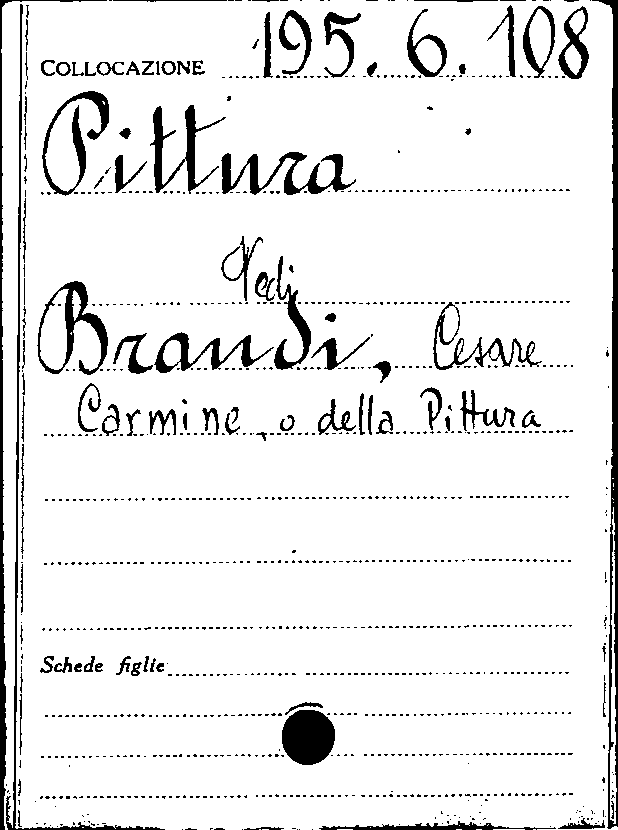 COLLOCAZIONE 195. 6. 108
Pittura
Vedi
Brandi, Cesare
Carmine, o della Pittura
Schede figlie